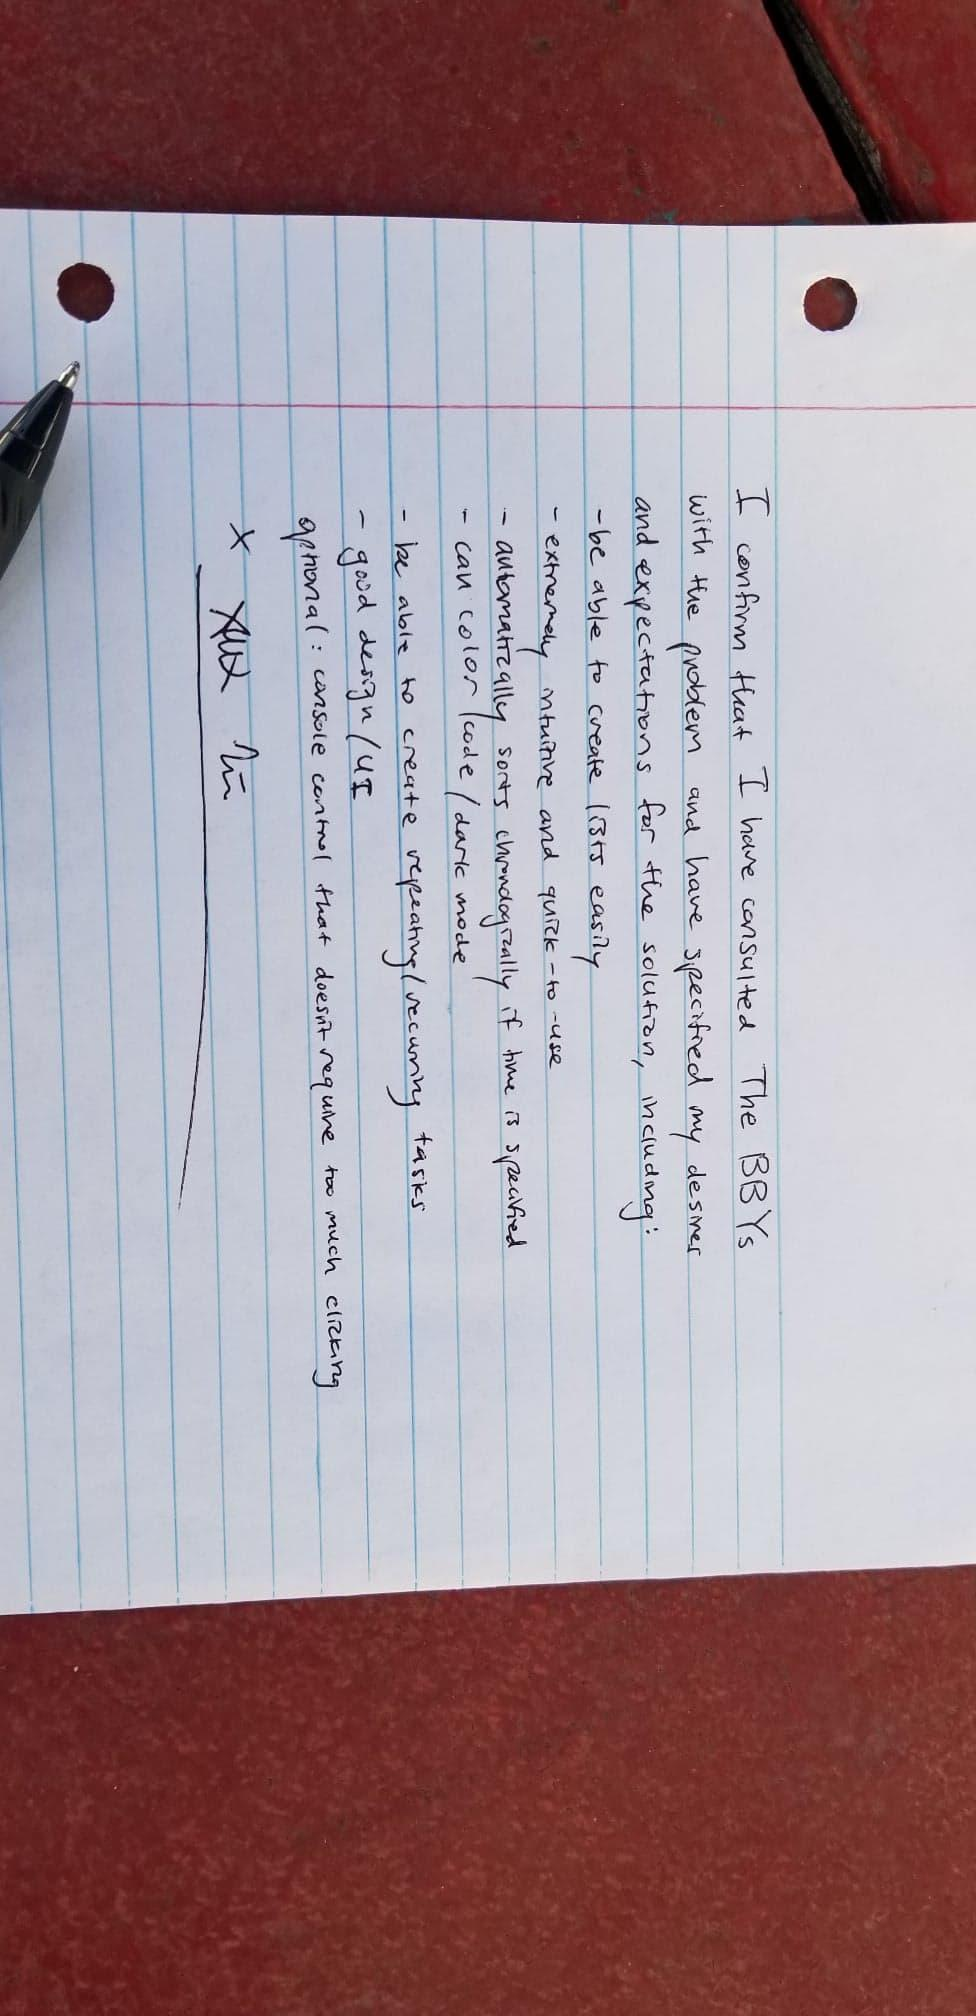 I confirm that I have consulted The BBYs
with the problem and have specified my desires
and expectations for the solution, including:
- be able to create lists easily
- extremely intuitive and quick-to-use
- automatically sorts chronologically if time is specified
- can color/code/dark mode
- be able to create repeating/recurring tasks
- good design/UI
optional: console control that doesn't require too much clicking
X